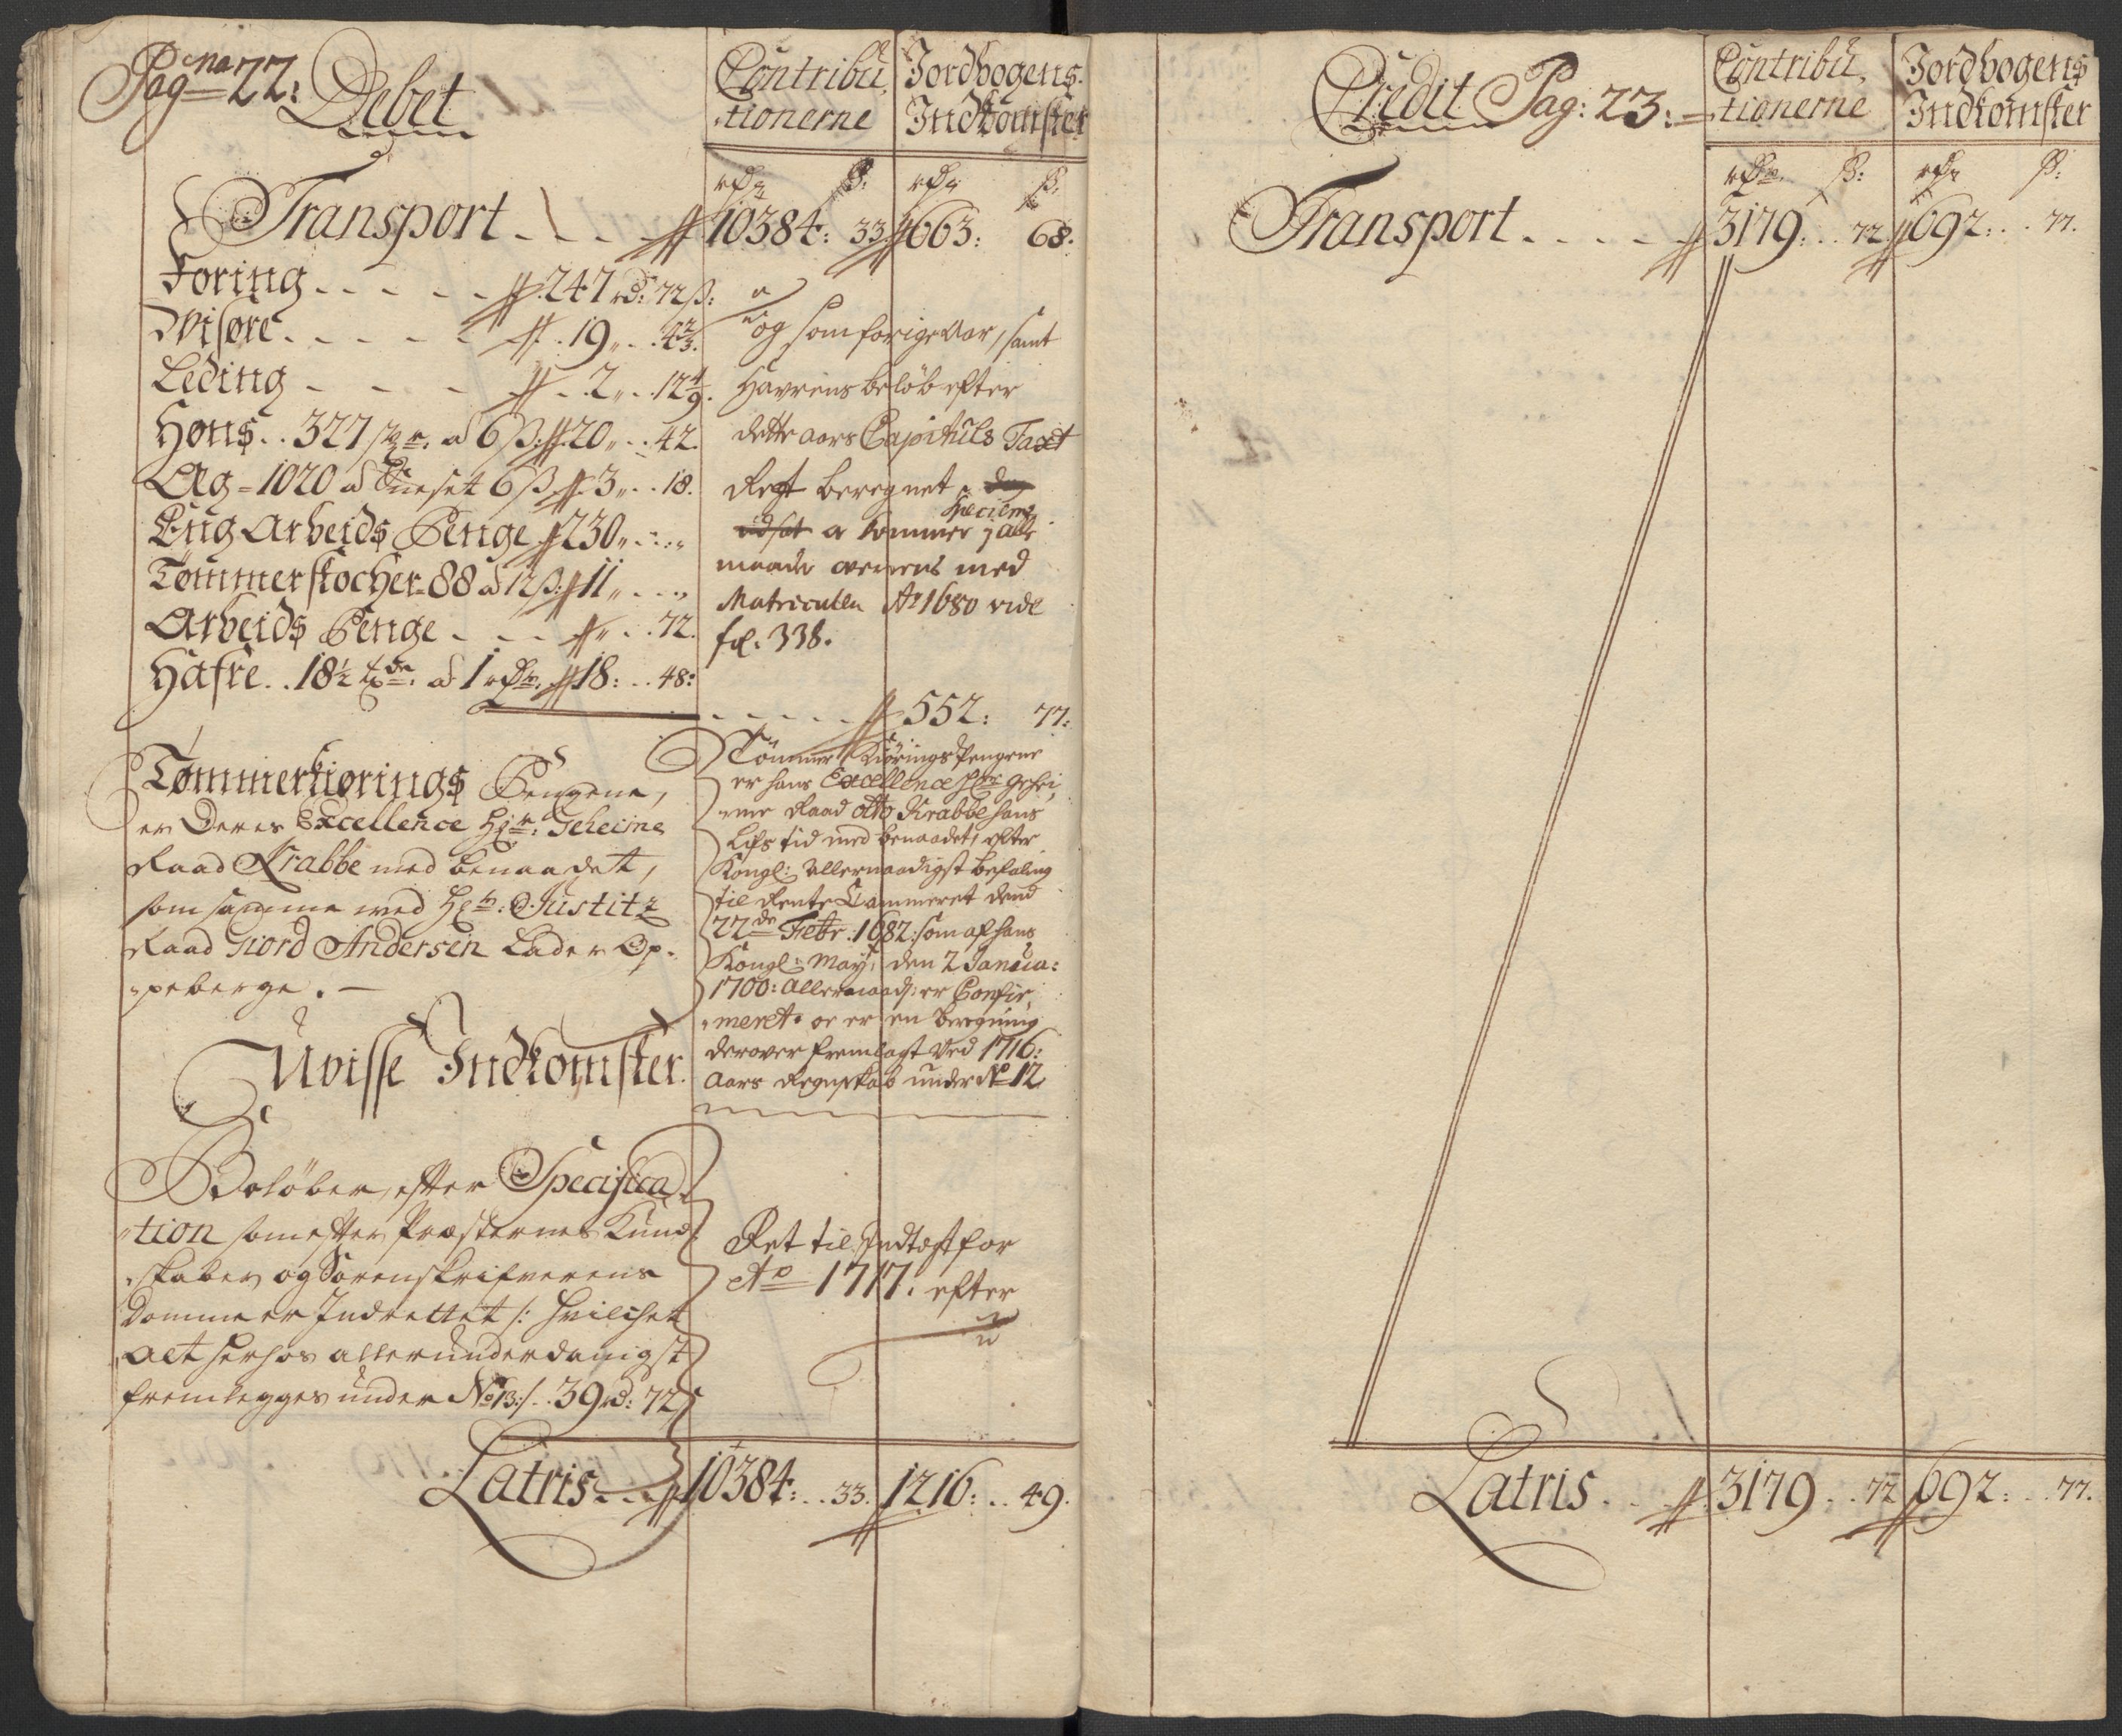 Pagna 22: Debet
Contribu,
tionerne
Jordbogens
Indkomster
rdr ß: rdr ß:
Transport 10384: 33. 663: 68.
Foring 247 rd: 72 ß:
Visøre 19 „ 4 2/3.
Leding 2 „ 12 4/9.
Høns 327 st: a 6 ß: 20 „ 42.
Æg 1020 a Sneset 6 ß 3 „ 18.
Eng Arbeids Penge 230 „
Tømmerstocher 88 a 12 ß: 11 „
Arbeids Penge „ 72.
Hafre 18½ tdr: a 1 rdr. 18: 48:
og som forige Aar, samt
Havrens beløb efter
dette aars Capituls Taxt
Regt beregnet
Specierne
er kommer j alle
maade overens med
Matriculen Ao 1680 vide
fol: 338.
552: 77:
Tømmerkiørings Pengene,
er Deres Excellence Hr: Geheime
Raad Krabbe med benaadet,
som samme med Hr: Justitz
Raad Giord Andersen Lader Op-
peberge.
Tømmer Kiørings Pengene
er hans Excellence Hr Gehei,
me Raad Otto Krabbe hans
Lifs tid med benaadet, efter
Kongl: Allernaadigst befaling
til Rente Cammeret dend
22de Febr. 1682: som af hans
Kongl: May: den 2 Janua:
1700: Allernaad: er Confir,
meret. oc er en beregning
derover fremlagt Ved 1716:
Aars Regnskab under No 12
Uvisse Indkomster.
Beløber, efter Specifica-
tion som efter Præsternes Kund-
skaber og Sorenskrifverens
Domme er Indrettet /: hvilchet
alt herhos allerunderdanigst
fremlegges under No 13:/ 39 rd: 72 ß
Ret til Indtægt for
Ao 1717. efter
Latris 10384: 33. 1216: 49.
Credit Pag: 23:
Contribu,
tionerne
Jordbogens
Indkomster
rdr. ß: rdr ß:
Transport 3179: 72. 692: 77.
Latris 3179 72 692: 77.